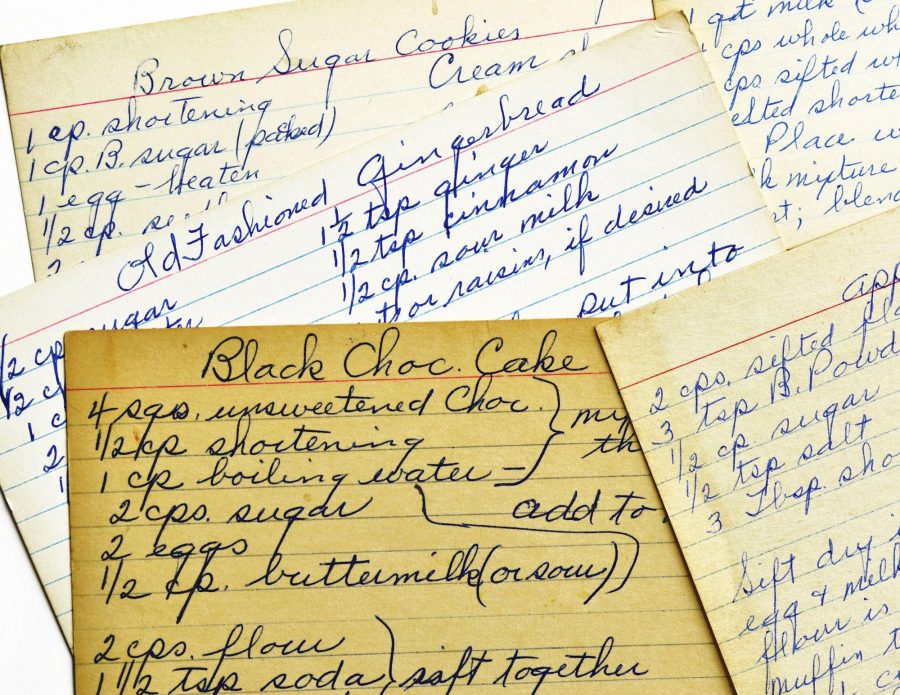 Brown Sugar Cookies
Cream
1 cp. shortening
1 cp. B. sugar (packed)
1 egg - beaten
1/2 cp.
1 qt milk
cps whole
cps sifted
shorte
Place
mixture
blend
Old Fashioned Gingerbread
1 1/2 tsp ginger
1/2 tsp cinnamon
1/2 cp. sour milk
or raisins, if desired
put in to
1/2 cp. sugar
1/2 c
1 c
2
Black Choc. Cake
4 sqs. unsweetened Choc.
1/2 cp shortening
1 cp boiling water
2 cps. sugar
add to
2 eggs
1/2 cp. buttermilk (or sour)
2 cps. flour
1 1/2 tsp soda sift together
app
2 cps. sifted fl
3 tsp B. Powd
1/2 cp. sugar
1/2 tsp salt
3 Tbsp sho
Sift dry
egg & milk
flour is
muffin t